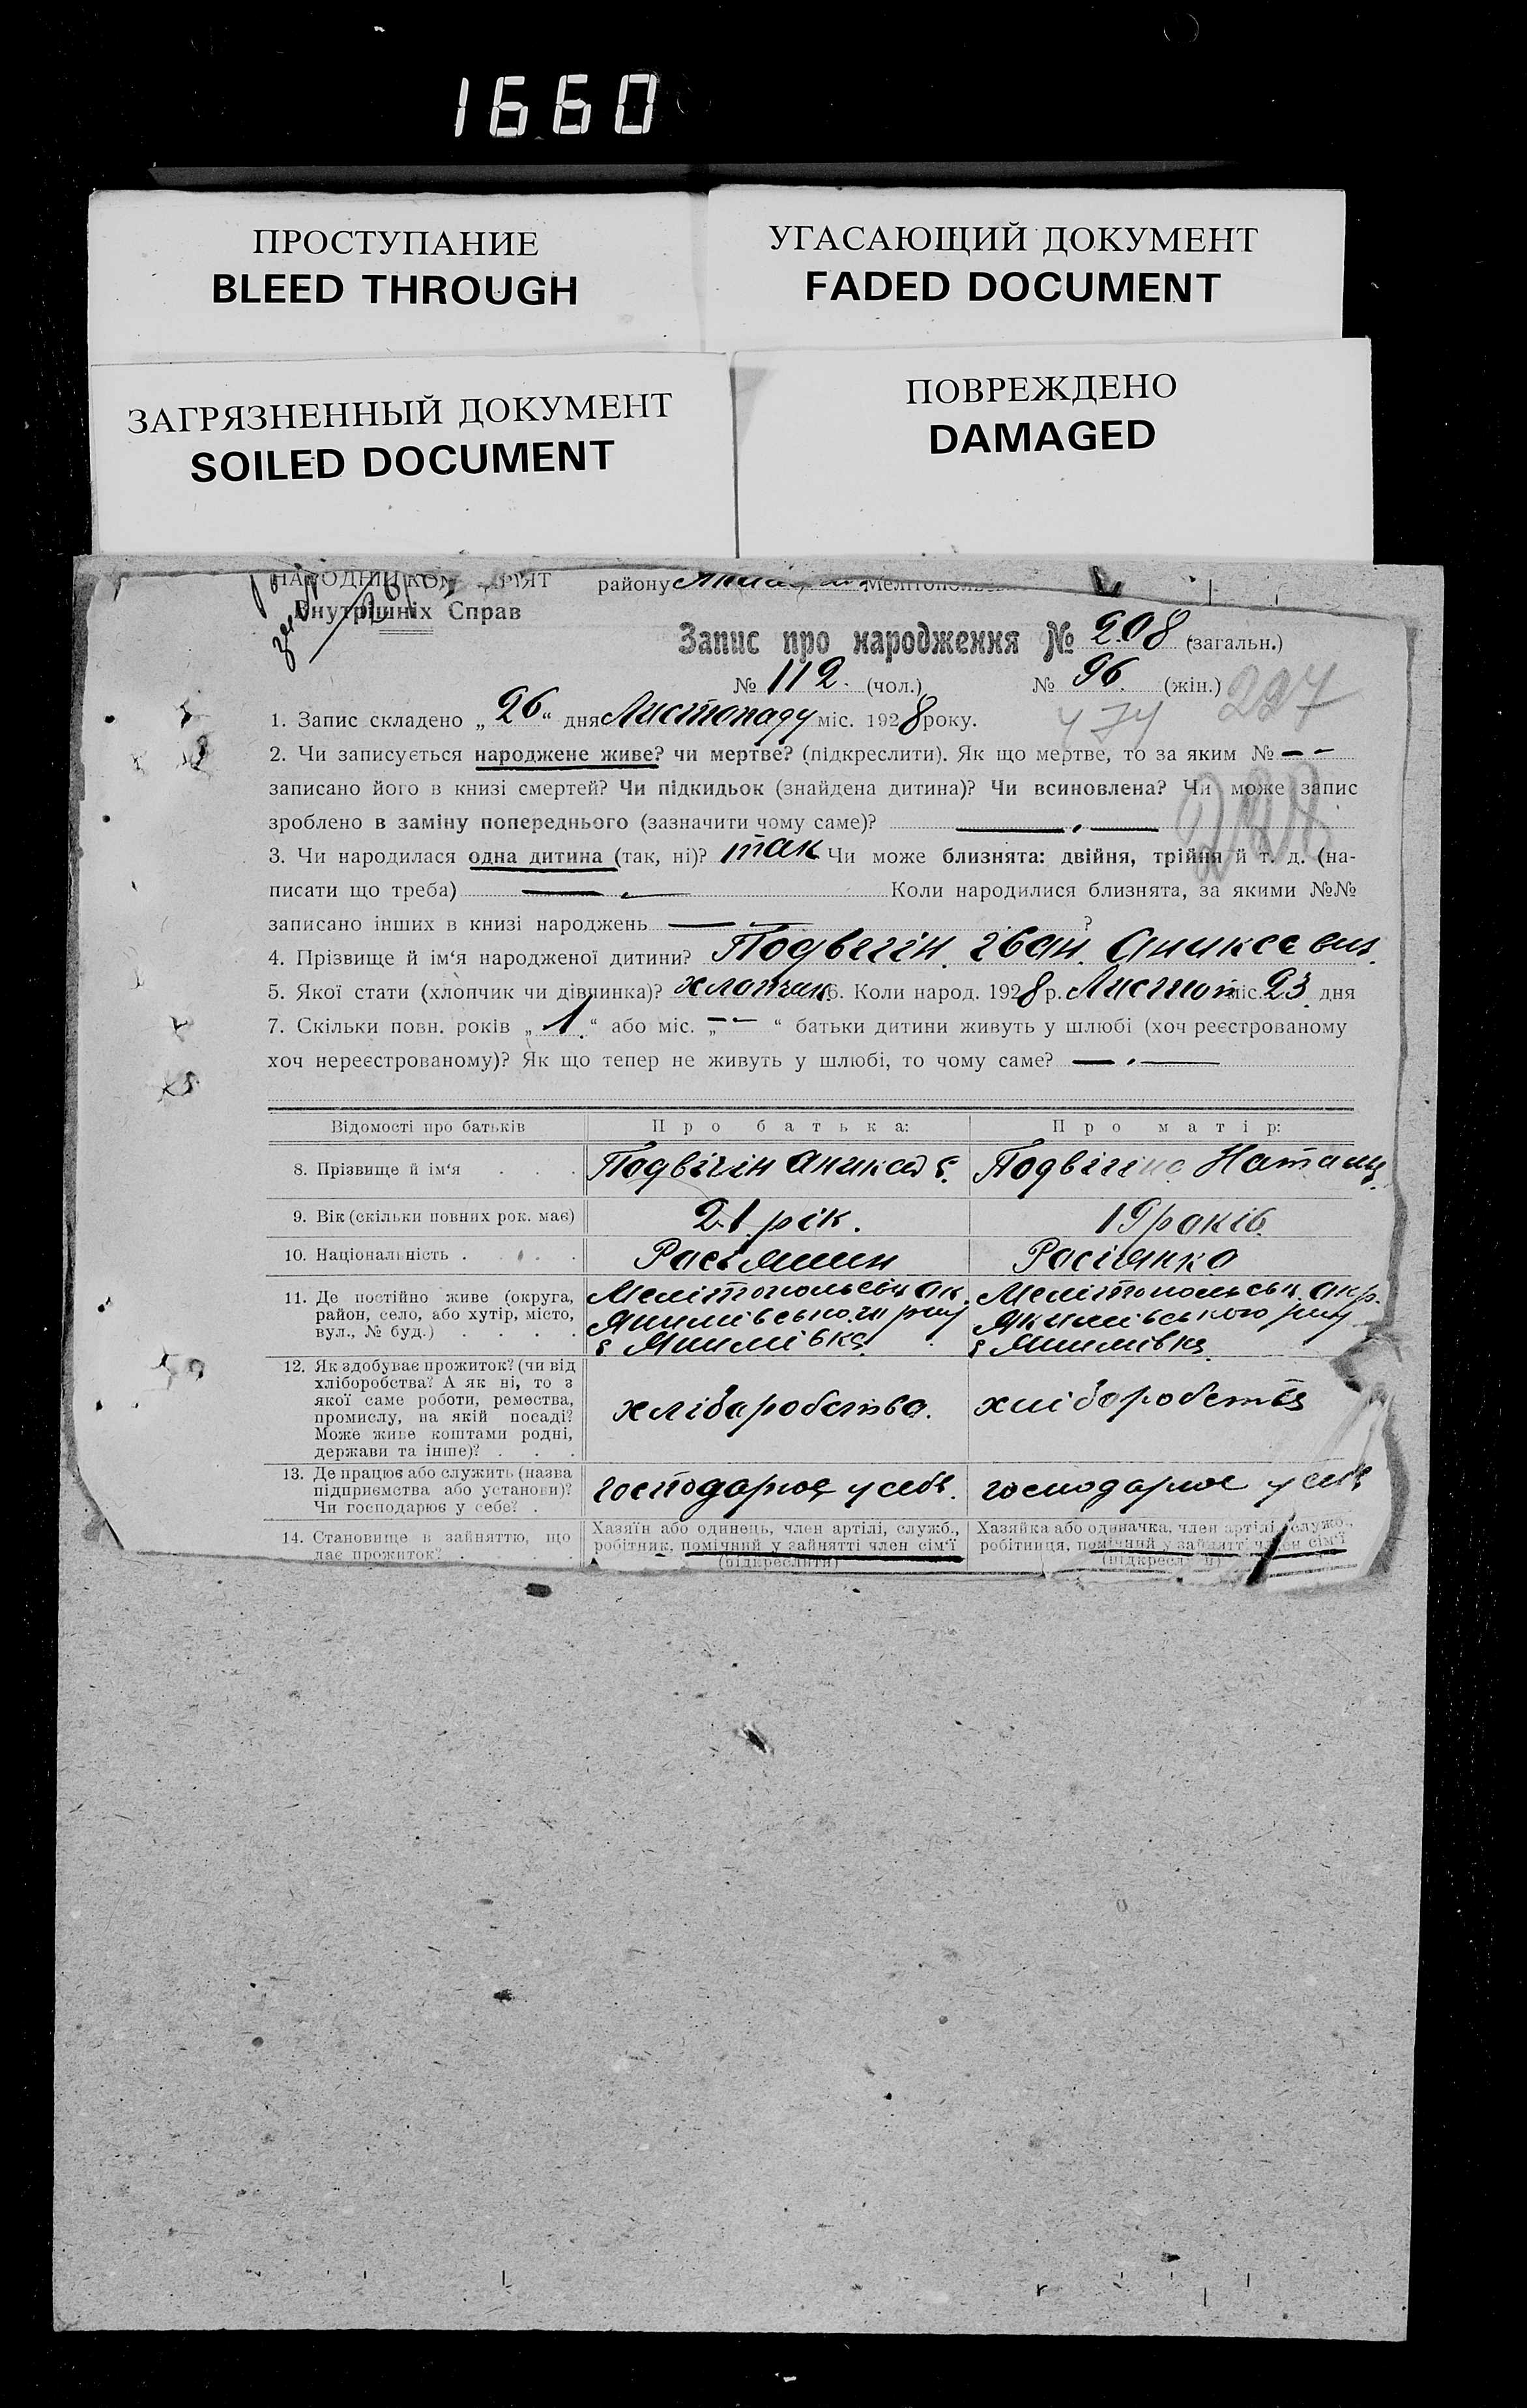 1660
ПРОСТУПАНИЕ
BLEED THROUGH
УГАСАЮЩИЙ ДОКУМЕНТ
FADED DOCUMENT
ЗАГРЯЗНЕННЫЙ ДОКУМЕНТ
SOILED DOCUMENT
ПОВРЕЖДЕНО
DAMAGED
району
Внутрішніх Справ
Запис про народження № 208 (загальн.)
№ 112. (чол.) № 96. (жін.) 227
1. Запис складено „ 26 “ дня Листопаду міс. 1928 року.
2. Чи записується народжене живе? чи мертве? (підкреслити). Як що мертве, то за яким № – –
записано його в книзі смертей? Чи підкидьок (знайдена дитина)? Чи всиновлена? Чи може запис
зроблено в заміну попереднього (зазначити чому саме)?
3. Чи народилася одна дитина (так, ні)? так Чи може близнята: двійня, трійня й т. д. (на-
писати що треба) Коли народилися близнята, за якими №№
записано інших в книзі народжень ?
4. Прізвище й ім‘я народженої дитини? Подвігін. Іван.
5. Якої стати (хлопчик чи дівчинка)? хлопчик 6. Коли народ. 1928 р. Листоп міс. 23 дня
7. Скільки повн. років „ 1 “ або міс. „ – – “ батьки дитини живуть у шлюбі (хоч реєстрованому
хоч нереєстрованому)? Як що тепер не живуть у шлюбі, то чому саме?
Відомості про батьків Про батька: Про матір:
8. Прізвище й ім‘я . . . Подвігін Подвігіна
9. Вік (скільки повних рок. має) 21 рік. 19 років
10. Національність . . . Росіянин Росіянка
11. Де постійно живе (округа,
район, село, або хутір, місто,
вул., № буд.) . . . .
Мелітопольськ ок.
Якимівського р-ну
с Якимівка
Мелітопольськ. окр.
Якимівського р-ну
с Якимівка
12. Як здобуває прожиток? (чи від
хліборобства? А як ні, то з
якої саме роботи, ремества,
промислу, на якій посаді?
Може живе коштами родні,
держави та інше)? . . .
хліборобство. хліборобство
13. Де працює або служить (назва
підприємства або установи)?
Чи господарює у себе? .
господарює у себе. господарює у себе
14. Становище в зайняттю, що
дає прожиток? . . .
Хазяїн або одинець, член артілі, служб.,
робітник, помічний у зайнятті член сім‘ї
(підкреслити)
Хазяйка або одиначка, член артілі, служб.,
робітниця, помічний у зайнятті член сім‘ї
(підкреслити)